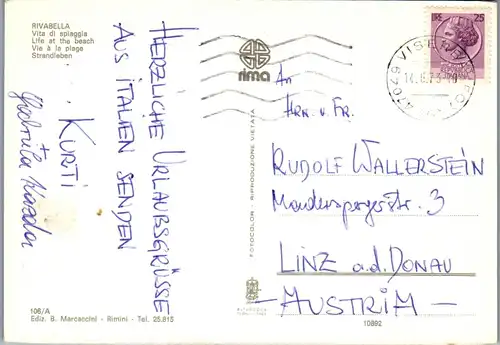 RIVABELLA
Vita di spiaggia
Life at the beach
Vie à la plage
Strandleben
HERZLICHE URLAUBSGRÜSSE
AUS ITALIEN SENDEN
KURTI
+
rima
LIRE 25
47049 VISERBA
14.6.73
An
HRN. u. FR.
RUDOLF WALLERSTEIN
3
LINZ a.d. DONAU
- AUSTRIA -
FOTOCOLOR - RIPRODUZIONE VIETATA
10892
106/A
Ediz. B. Marcaccini - Rimini - Tel. 25.815